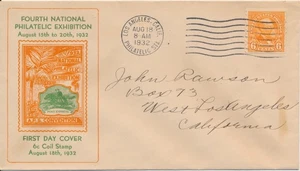 FOURTH NATIONAL
PHILATELIC EXHIBITION
August 15th to 20th, 1932
A.P.S. CONVENTION
FIRST DAY COVER
6c Coil Stamp
August 18th, 1932
LOS ANGELES, CALIF.
AUG 18
8 AM
1932
PHILATELIC STA.
John Rawson
Box 73
West Los Angeles
California